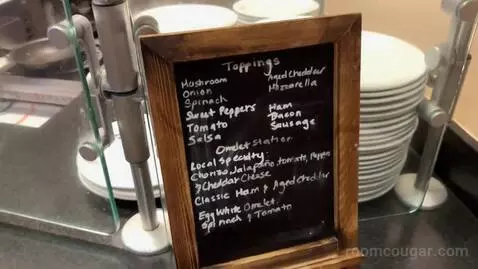 Toppings
Mushroom Aged Cheddar
Onion Mozzarella
Spinach
Sweet Peppers Ham
Tomato Bacon
Salsa Sausage
Omelet Station
Local Specialty:
Chorizo, Jalapaño, tomato, Peppers
& Cheddar Cheese
Classic Ham & Aged Cheddar
Egg White Omelet:
Spinach & Tomato
roomcougar.com